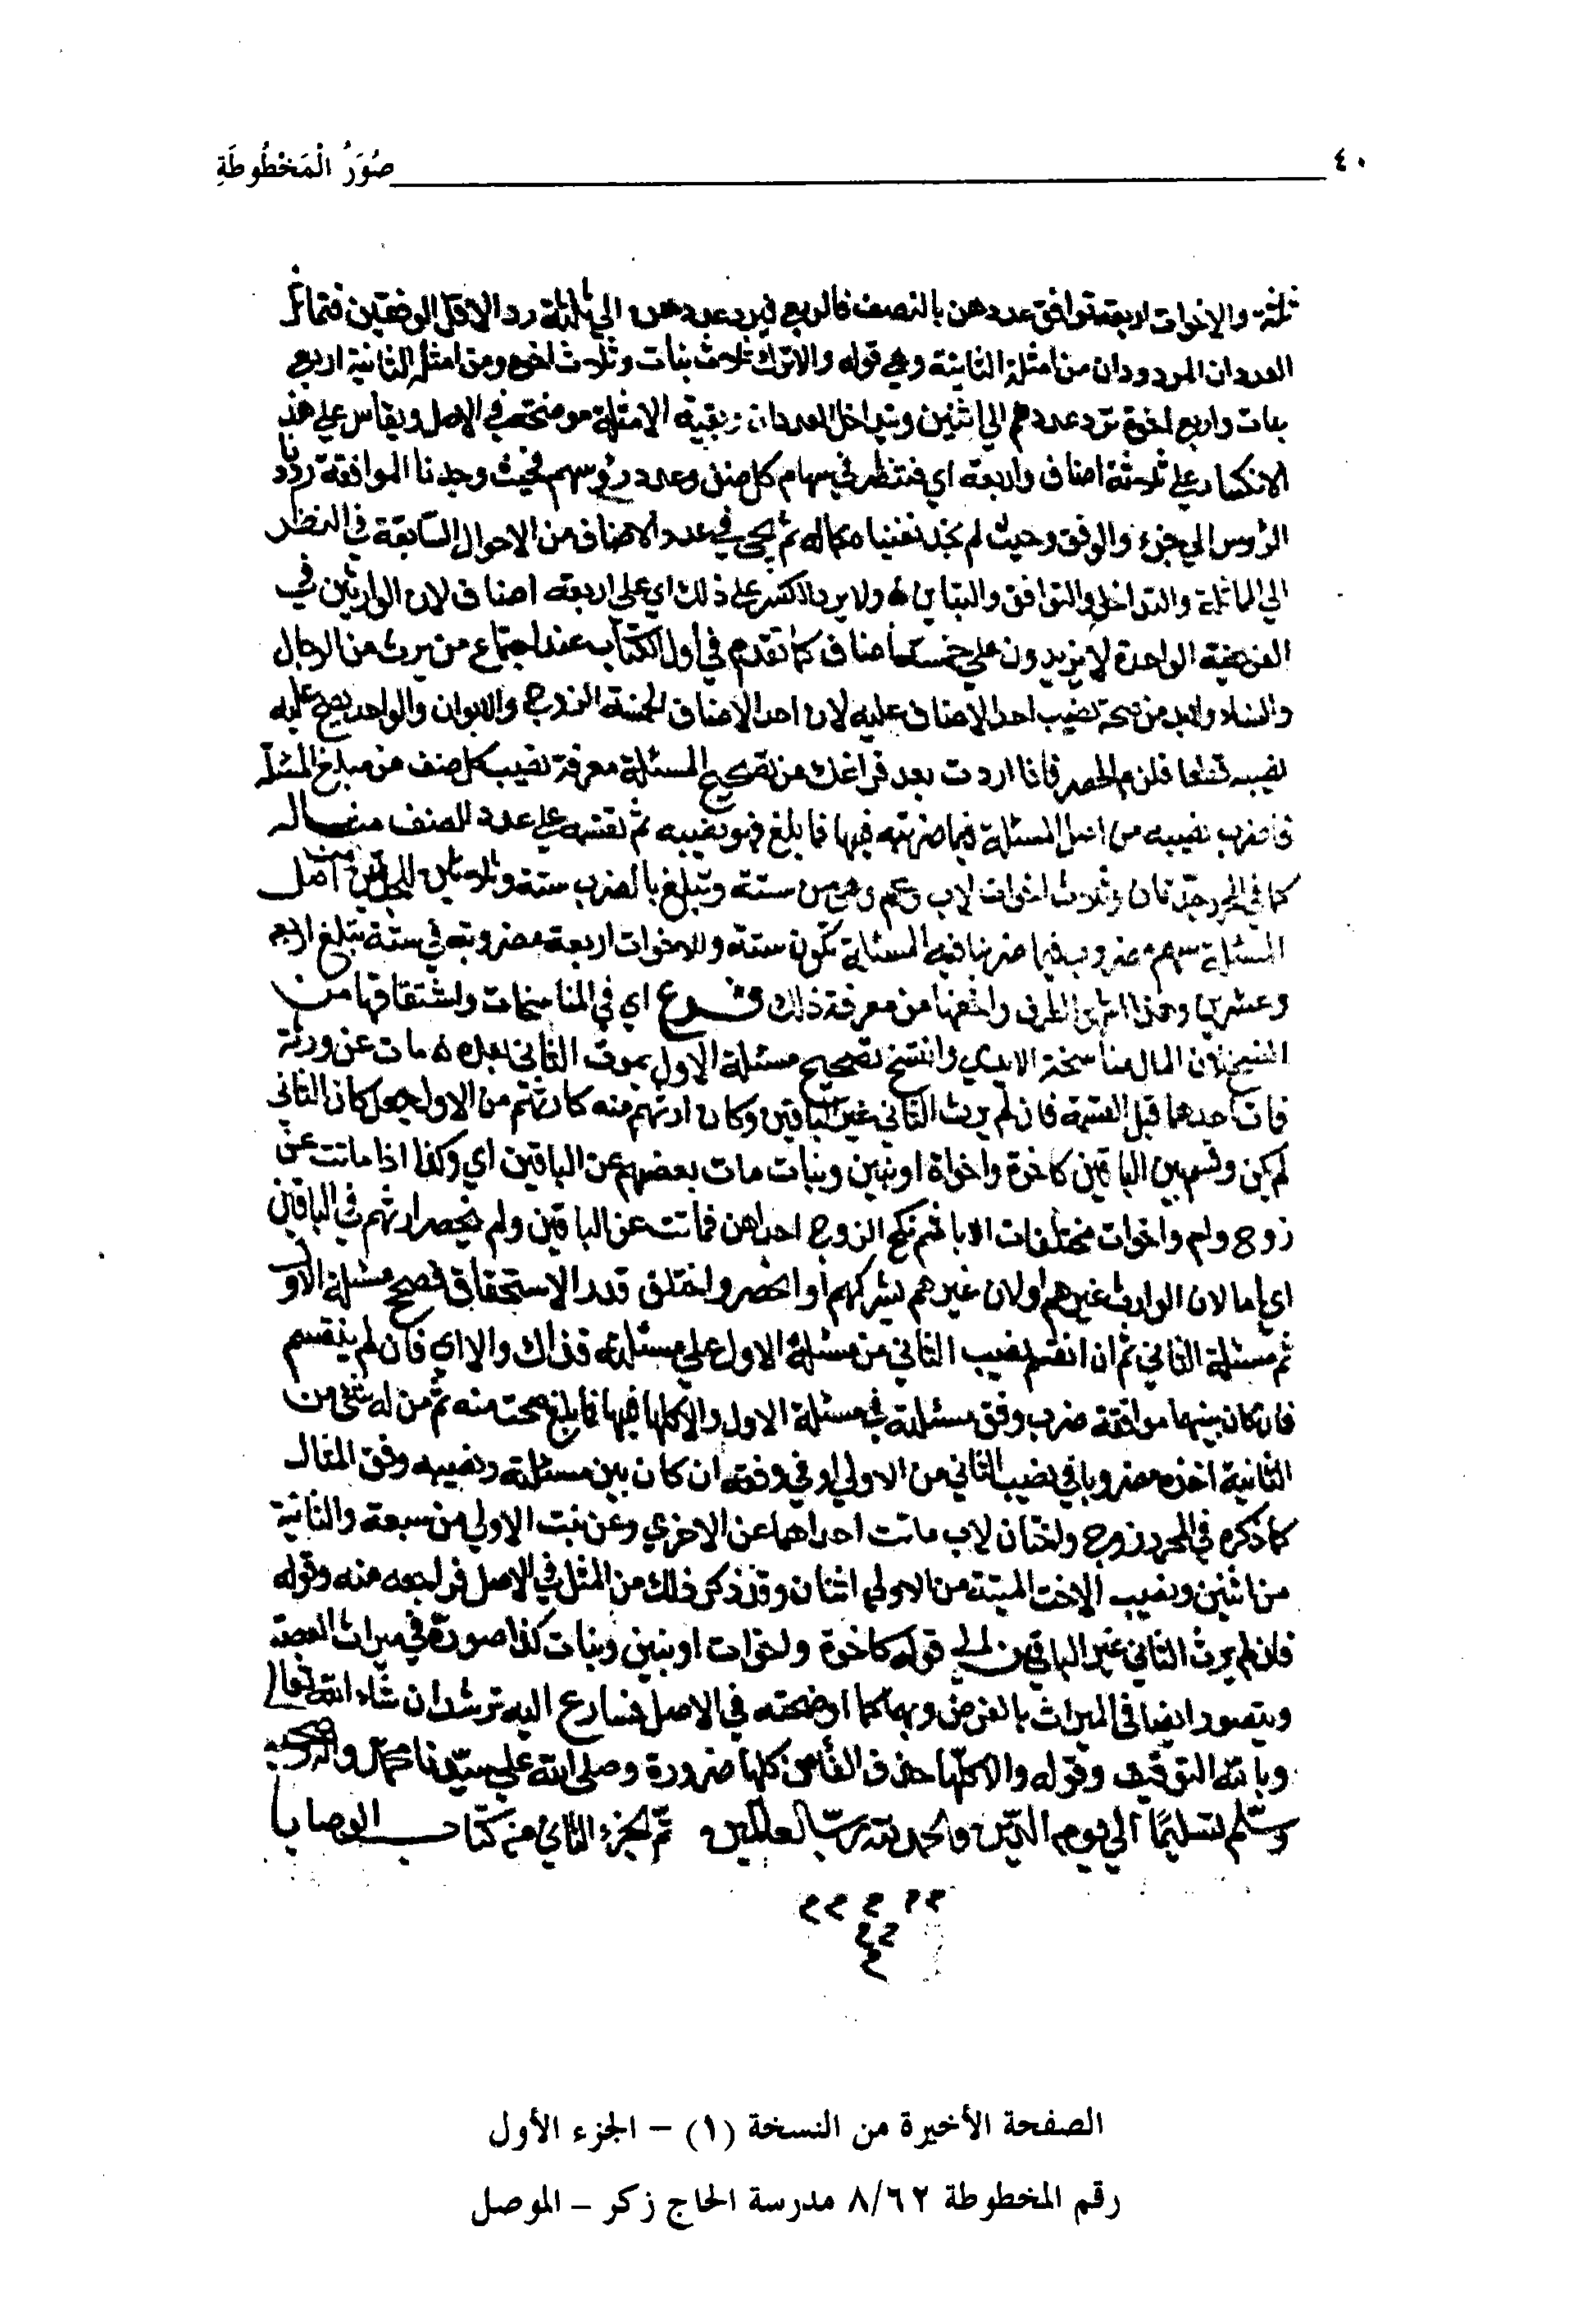 ٤٠ صُوَرُ الْمَخْطُوطَةِ
ثلثة والاخوات اربعة توافق عددهن بالنصف فالربع فيرد عددهن الى ثلثة رد الاقل الوفقين فتماثل
العددان المردودان من امثلة الثانية وهي قوله والاترك ثلاث بنات وثلاث اخوة ومن امثلة الثانية اربع
بنات واربع اخوة ترد عددهم الي اثنين ويتداخل العددان وبقية الامثلة موضحة في الاصل ويقاس على هذ
الانكسار على ثلاثة اصناف واربعة اي فتنظر في سهام كل صنف وعدد رؤسهم فحيث وجدنا الموافقة رددنا
الرؤس الي جزء والوفق وحيث لم نجد بقينا بحاله ثم يجي في عدد الاصناف من الاحوال السابقة في النظر
الي المماثلة والتداخل والتوافق والتباين ولا يزيد الكسر على ذلك اي على اربعة اصناف لان الوارثين في
الفريضة الواحدة لا يزيدون على خمسة اصناف كما تقدم في اول الكتاب عند اجتماع من يرث من الرجال
والنساء ولابد من صحة نصيب احد الاصناف عليه لان احد الاصناف الخمسة الزوج والابوان والواحد يصح عليه
نصيبه قطعا فلزم الحصر فاذا اردت بعد فراغك من تصحيح المسئلة معرفة نصيب كل صنف من مبلغ المسئلة
فاضرب نصيبه من اصل المسئلة فيما ضربته فيها فما بلغ فهو نصيبه ثم تقسمه على عدد الصنف مثاله
كما في المحرر جدتان وثلاث اخوات لاب وعم وهي من ستة وتبلغ بالضرب ستة وثلاثين للجدتين من اصل
المسئلة سهم مضروب فيما ضربنا فيه المسئلة تكون ستة وللاخوات اربعة مضروبة في ستة تبلغ اربعة
وعشرين وهذا الطرق وانفعها من معرفة ذلك فـرع اي في المناسخات واشتقاقها من
النسخ لان المال تناسخته الايدي وانتسخ تصحيح مسئلة الاول بموت الثاني بعده مات عن ورثة
فمات احدهما قبل القسمة فان لم يرث الثاني غير الباقين وكان ارثهم منه كارثهم من الاول جعل كان الثاني
لم يكن وقسم بين الباقين كاخوة واخوات او بنين وبنات مات بعضهم عن الباقين اي وكذا اذا ماتت عن
زوج وام واخوات مختلفات الابا ثم نكح الزوج احداهن فماتت عن الباقين ولم ينحصر ارثهم في الباقين
اي اما لان الوارث غيرهم او لان غيرهم يشركهم أو انحصر واختلف قدر الاستحقاق فصحح مسئلة الاول
ثم مسئلة الثاني ثم ان انقسم نصيب الثاني من مسئلة الاول على مسئلته فذاك والا اي فان لم ينقسم
فان كان بينهما موافقة ضرب وفق مسئلته في مسئلة الاول والا كلها فيها فما بلغ صحت منه ثم من له شئ من
الثانية اخذه مضروبا في نصيب الثاني من الاولي او في وفقه ان كان بين مسئلته ونصيبه وفق المثال
كما ذكره في المحرر زوج واختان لاب ماتت احداهما عن الاخري وعن بنت الاولي من سبعة والثانية
من اثنين ونصيب الاخت الميتة من الاولي اثنان وقد ذكر ذلك من المثل في الاصل فراجعه منه وقوله
فان لم يرث الثاني غير الباقين الي قوله كاخوة واخوات او بنين وبنات كذا صورة في ميراث العصبة
ويتصور ايضا في الميراث بالفرض وبهما كما اوضحته في الاصل فسارع اليه ترشد ان شاء الله تعالى
وبالله التوفيق وقوله والا كلها حذف الفأ من كلها ضرورة وصلى الله على سيدنا محمد واله وصحبه
وسلم تسليمًا الي يوم الدين والحمد لله رب العالمين تم الجزء الثاني من كتاب الوصايا
الصفحة الأخيرة من النسخة (١) - الجزء الأول
رقم المخطوطة ٨/٦٢ مدرسة الحاج زكر - الموصل